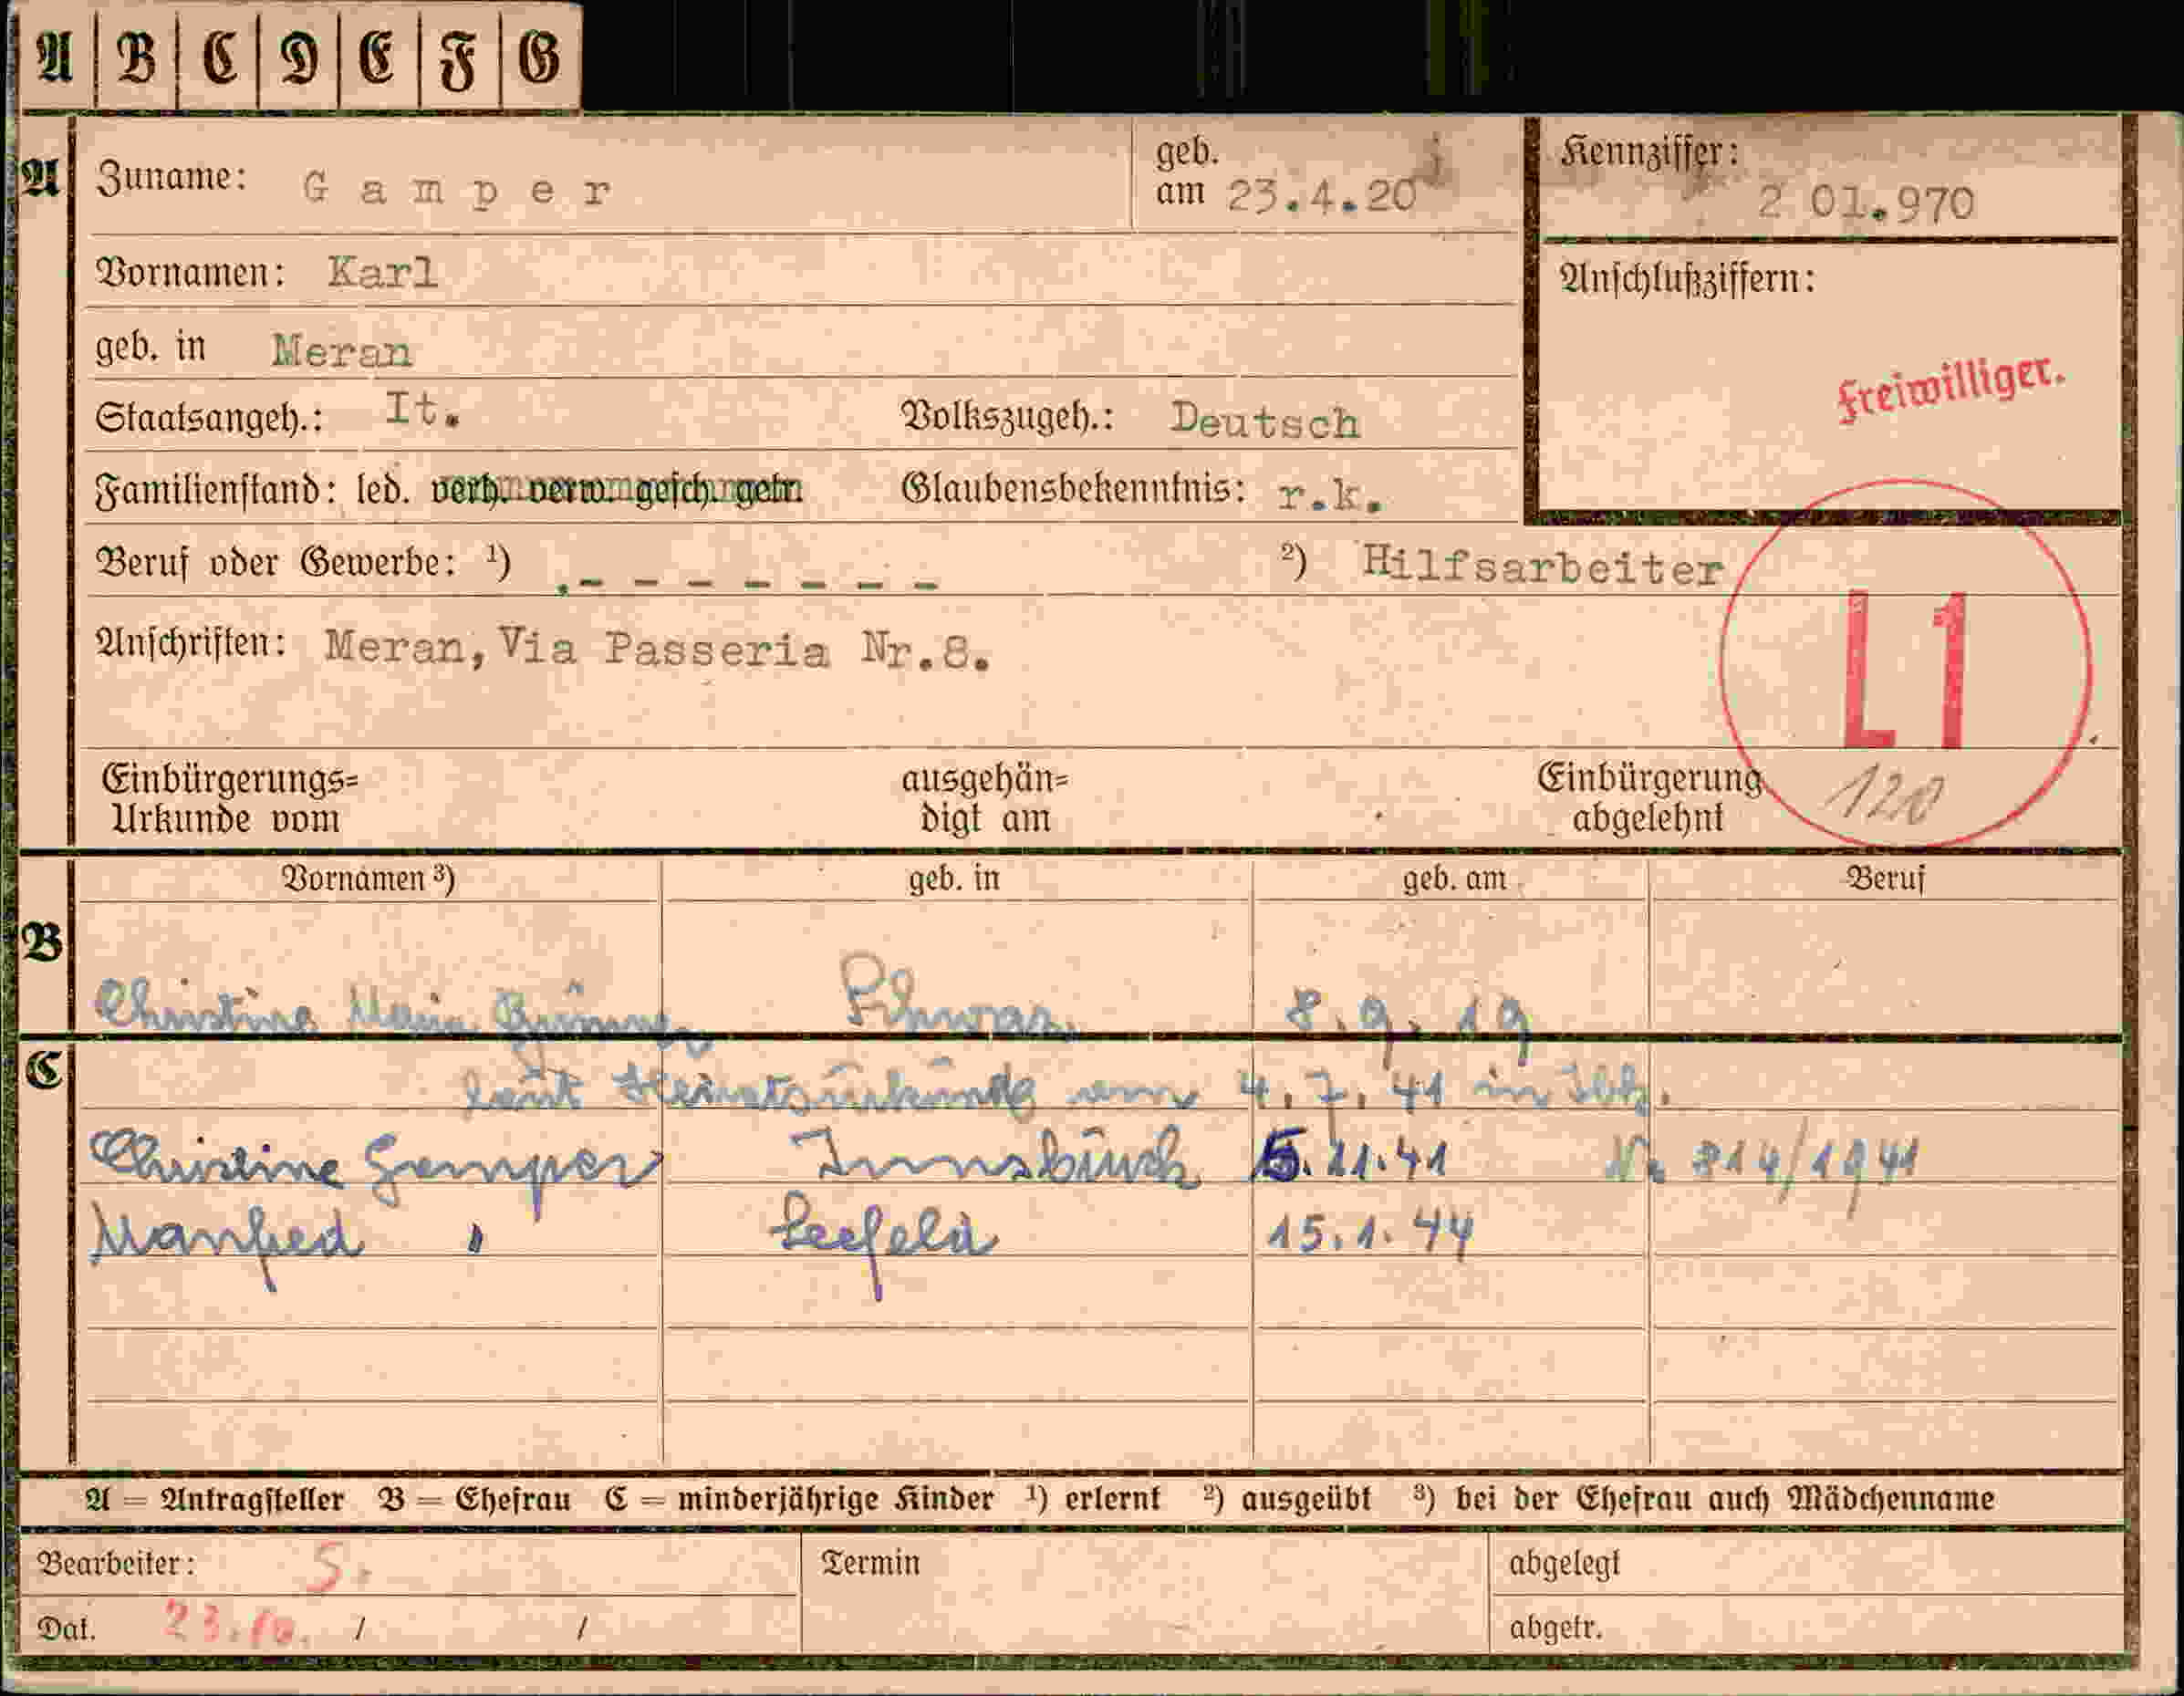 A B C D E F G
A Zuname: Gamper geb. am 23.4.20 Kennziffer: 2 01.970
Vornamen: Karl Anschlußziffern:
geb. in Meran
freiwilliger.
Staatsangeh.: It. Volkszugeh.: Deutsch
Familienstand: led. verh. verw. gesch. getr. Glaubensbekenntnis: r.k.
Beruf oder Gewerbe: ¹) .- - - - - - - ²) Hilfsarbeiter
L1
Anschriften: Meran, Via Passeria Nr.8.
Einbürgerungs= ausgehän= Einbürgerung 120
Urkunde vom digt am abgelehnt
Vornamen ³) geb. in geb. am Beruf
B
Christine Maria Schwaz 8.9.19
C
laut Heiratsurkunde vom 4.7.41 in Ibk.
Christine Gamper Innsbruck 5.11.41 Nr 814/1941
Manfred " Seefeld 15.1.44
A = Antragsteller B = Ehefrau C = minderjährige Kinder ¹) erlernt ²) ausgeübt ³) bei der Ehefrau auch Mädchenname
Bearbeiter: S. Termin abgelegt
Dat. 23.10. / / abgetr.